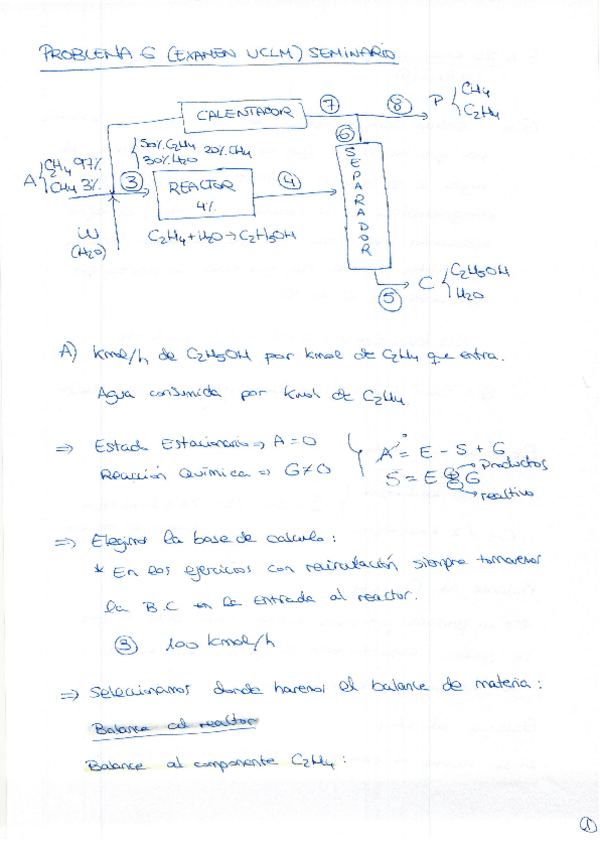 PROBLEMA 6 (EXAMEN UCLM) SEMINARIO
CALENTADOR
7
8
P
CH4
C2H4
A
CH4 97%
CH4 3%
50% C2H4 20% CH4
30% H2O
3
REACTOR
4%
4
6
SEPARADOR
W
(H2O)
C2H4 + H2O → C2H5OH
5
C
C2H5OH
H2O
A) Kmol/h de C2H5OH por kmol de C2H4 que entra.
Agua consumida por Kmol de C2H4
⇒ Estado Estacionario ⇒ A = 0
Reacción Química ⇒ G ≠ 0
A = E - S + G
S = E ± G
productos
reactivo
⇒ Elegimos la base de calculo:
* En los ejercicios con recirculación siempre tomaremos
la B.C en la entrada al reactor.
3 100 kmol/h
⇒ Seleccionamos donde haremos el balance de materia:
Balance al reactor
Balance al componente C2H4:
1